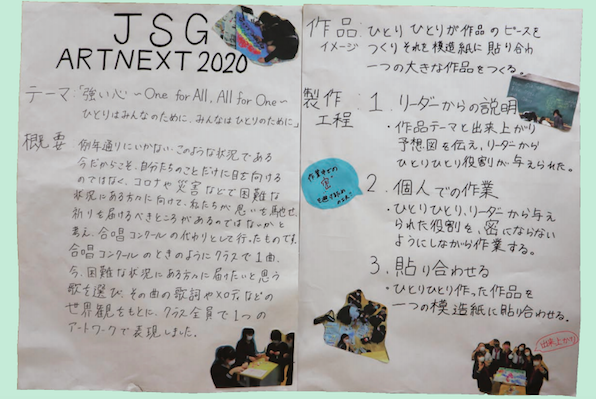 JSG
ARTNEXT 2020
テーマ:「強い心 ~One for All, All for One~
ひとりはみんなのために、みんなはひとりのために」
概要
例年通りにいかない、このような状況である
今だからこそ、自分たちのことだけに目を向ける
のではなく、コロナや災害などで困難な
状況にある方々に向けて、私たちが思いを馳せ、
祈りを届けるべきところがあるのではないかと
考え、合唱コンクールの代わりとして行ったものです。
合唱コンクールのときのようにクラスで1曲、
今、困難な状況にある方々に届けたいと思う
歌を選び、その曲の歌詞やメロディなどの
世界観をもとに、クラス全員で1つの
アートワークで表現しました。
作品イメージ:ひとりひとりが作品のピースを
つくりそれを模造紙に貼り合わ
一つの大きな作品をつくる。
製作工程:1. リーダーからの説明
・作品テーマと出来上がり
予想図を伝え、リーダーから
ひとりひとり役割が与えられた。
2. 個人での作業
・ひとりひとり、リーダーから与え
られた役割を、密にならない
ようにしながら作業する。
3. 貼り合わせる
・ひとりひとり作った作品を
一つの模造紙に貼り合わせる。
作業中での
"密"
出来上がり